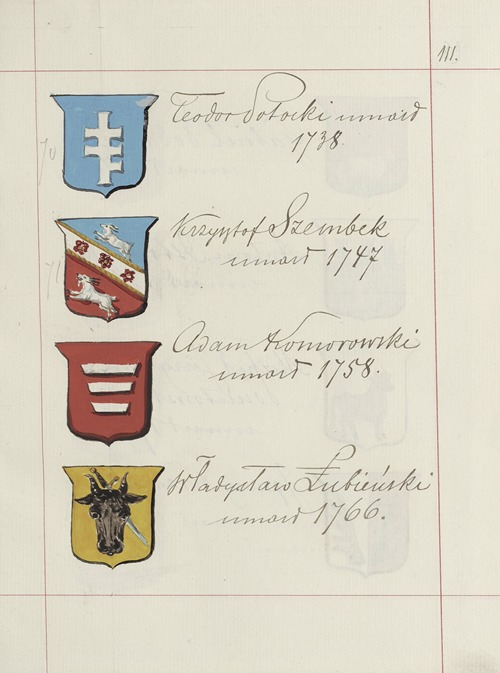 111.
Teodor Potocki umarł
1738.
70
Krzysztof Szembek
umarł 1747
71
Adam Komorowski
umarł 1758.
Władysław Łubieński
umarł 1766.